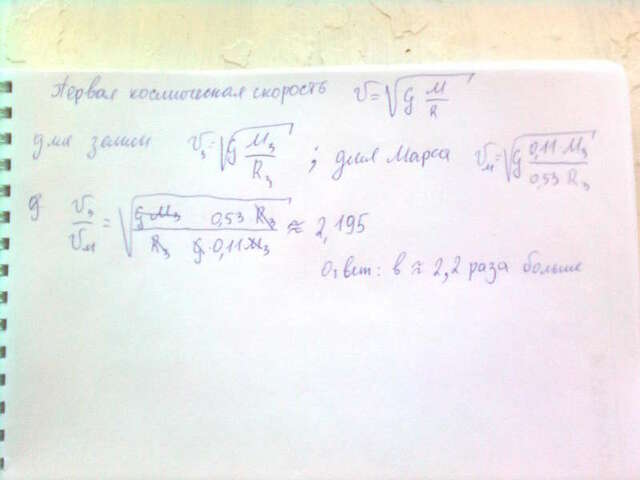 Первая космическая скорость V=√(G M/R)
для земли V₃=√(G M₃/R₃) ; для Марса Vм=√(G 0,11·M₃/0,53 R₃)
V₃/Vм=√(G M₃ 0,53 R₃/R₃ G·0,11 M₃) ≈ 2,195
Ответ: в ≈ 2,2 раза больше